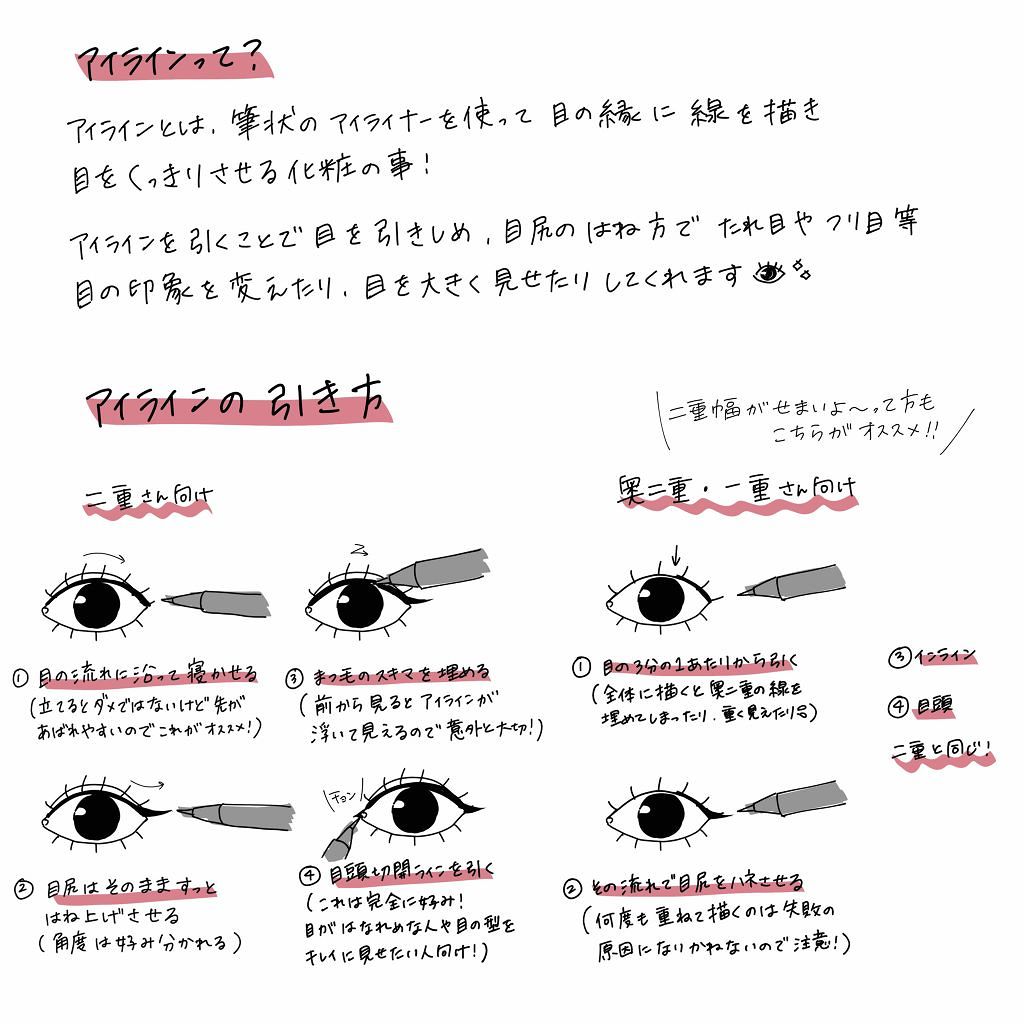 アイラインって?
アイラインとは、筆状のアイライナーを使って目の縁に線を描き
目をくっきりさせる化粧の事!
アイラインを引くことで目を引きしめ、目尻のはね方でたれ目やツリ目等
目の印象を変えたり、目を大きく見せたりしてくれます
アイラインの引き方
二重さん向け
①目の流れに沿って寝かせる
(立てるとダメではないけど先が
あばれやすいのでこれがオススメ!)
②目尻はそのまますっと
はね上げさせる
(角度は好み分かれる)
③まつ毛のスキマを埋める
(前から見るとアイラインが
浮いて見えるので意外と大切!)
チョン
④目頭切開ラインを引く
(これは完全に好み!
目がはなれめな人や目の型を
キレイに見せたい人向け!)
二重幅がせまいよ〜って方も
こちらがオススメ!!
奥二重・一重さん向け
①目の3分の1あたりから引く
(全体に描くと奥二重の線を
埋めてしまったり、重く見えたり)
②その流れで目尻をハネさせる
(何度も重ねて描くのは失敗の
原因になりかねないので注意!)
③インライン
④目頭
二重と同じ!